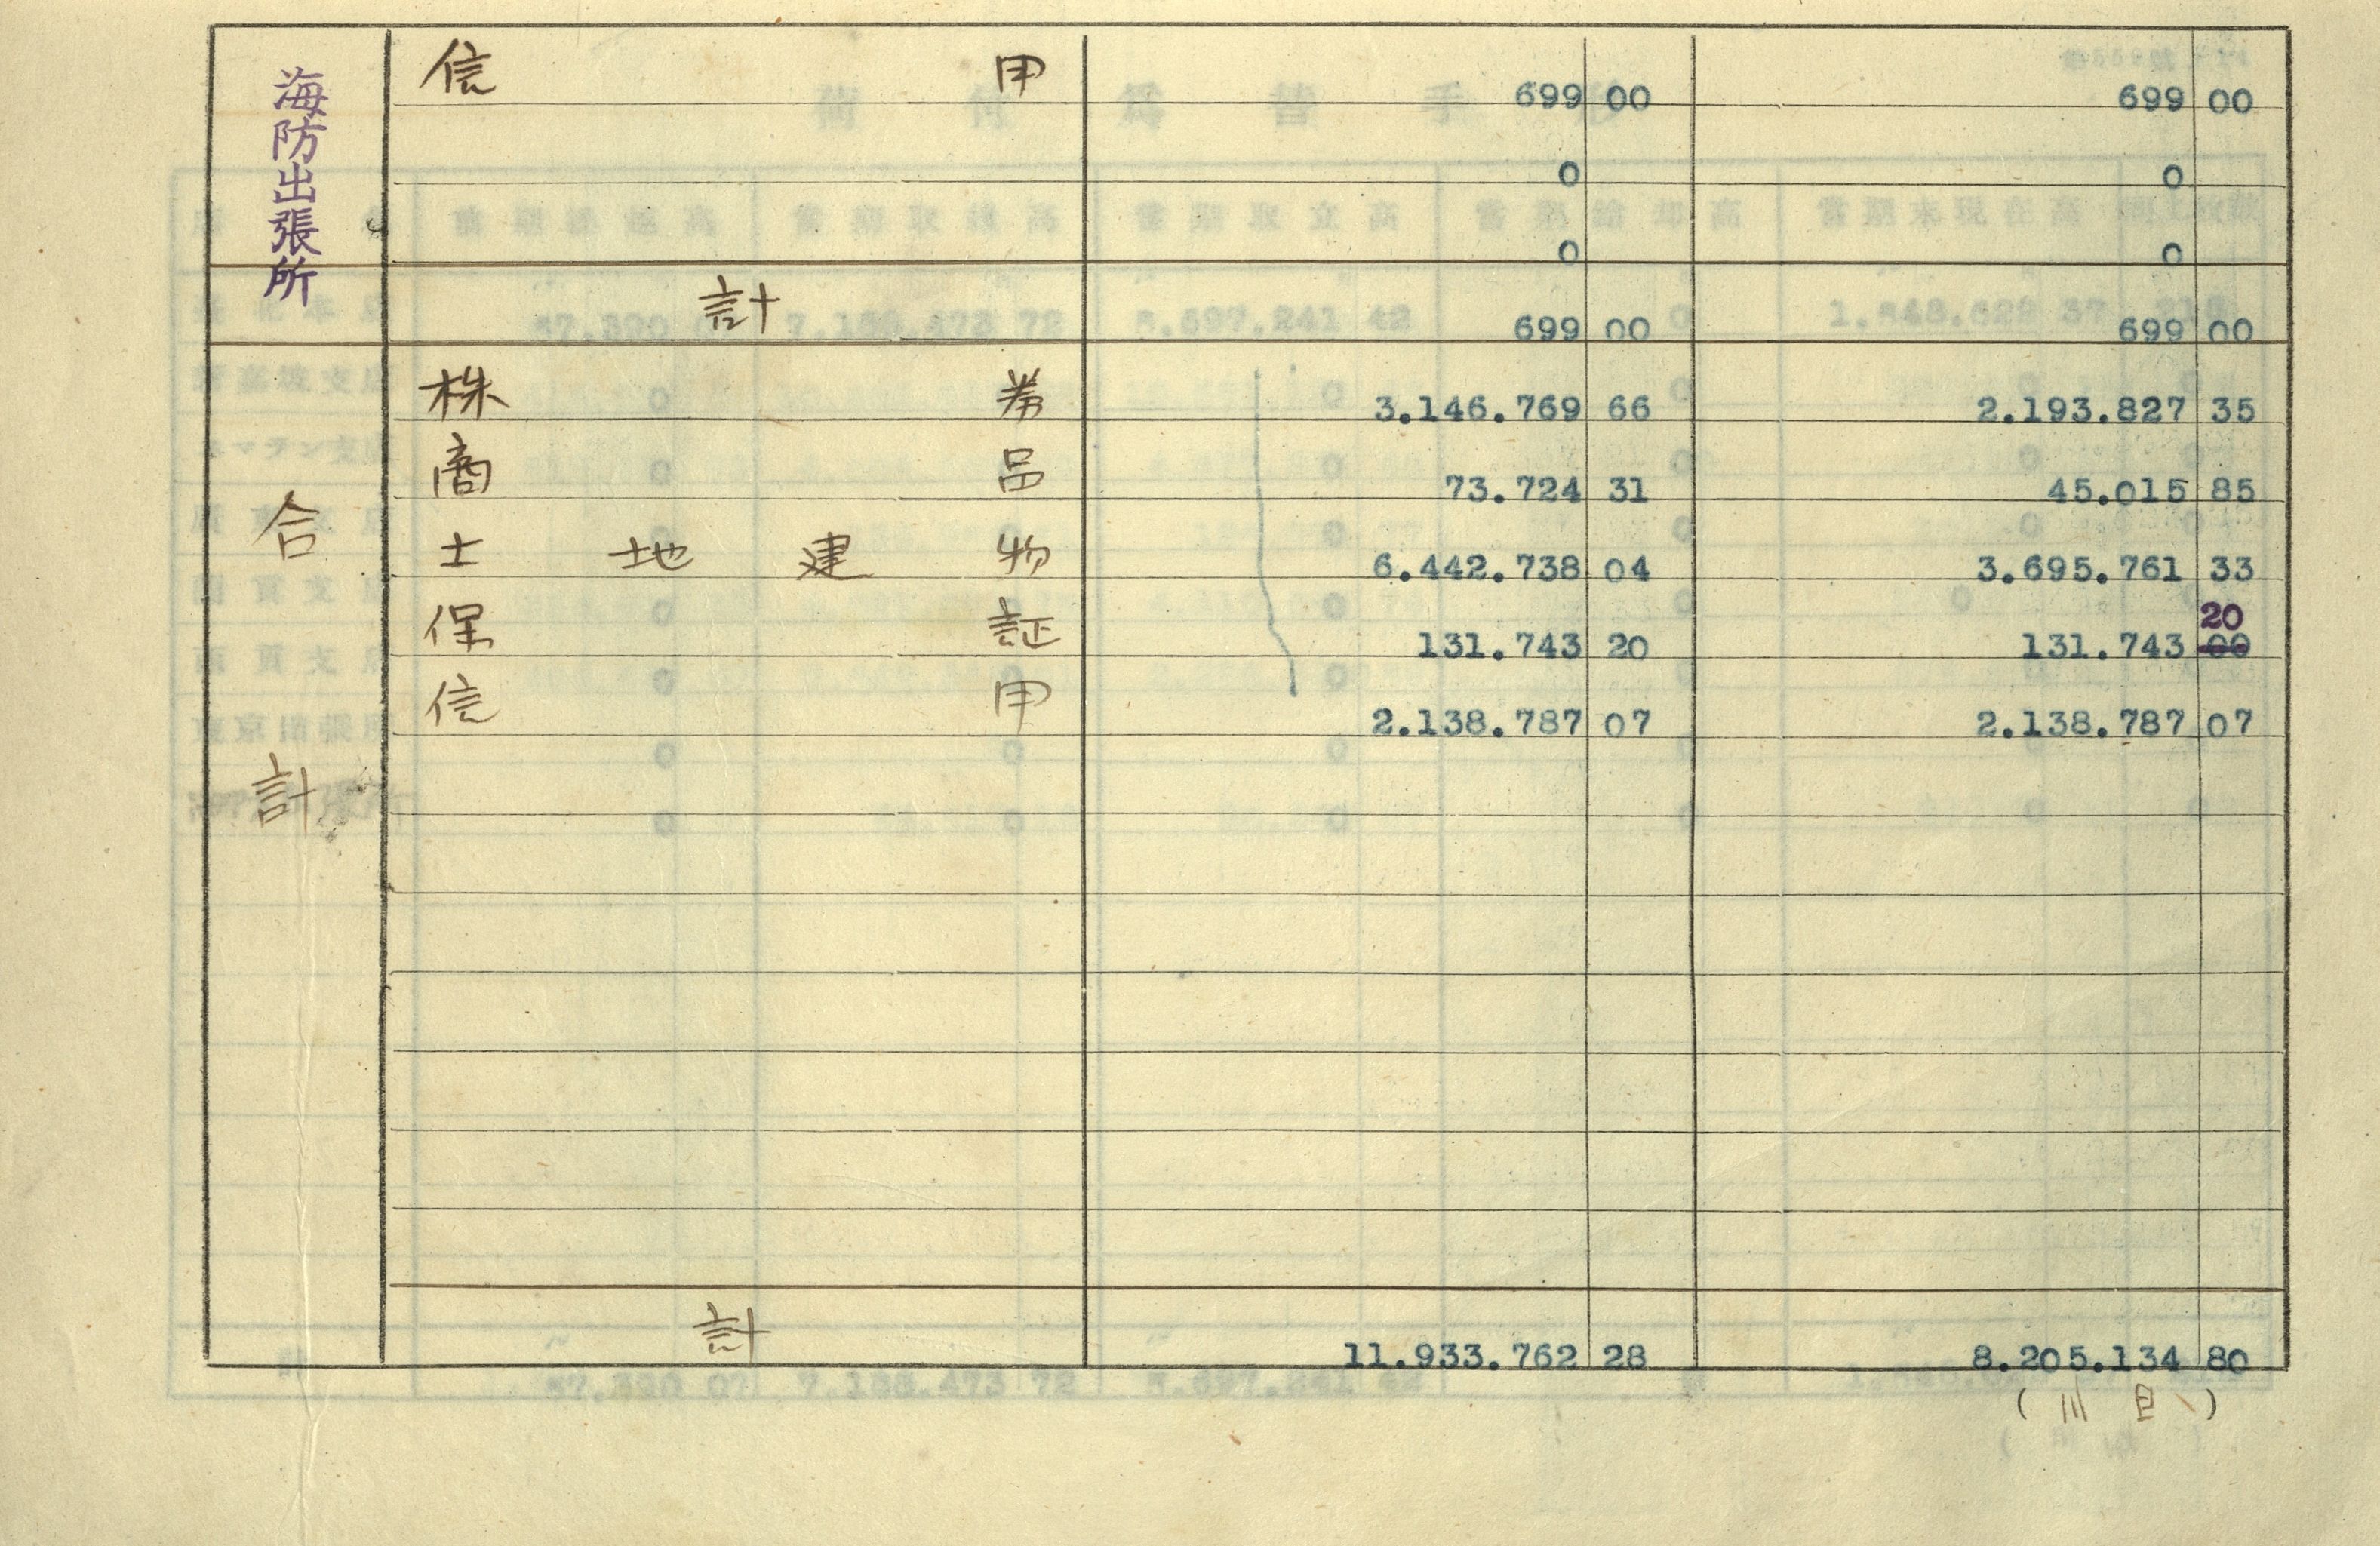 海防出張所
信用 699 00 699 00
0 0
0 0
計 699 00 699 00
合計
株券 3.146.769 66 2.193.827 35
商品 73.724 31 45.015 85
土地建物 6.442.738 04 3.695.761 33
20
保証 131.743 20 131.743 00
信用 2.138.787 07 2.138.787 07
計 11.933.762 28 8.205.134 80